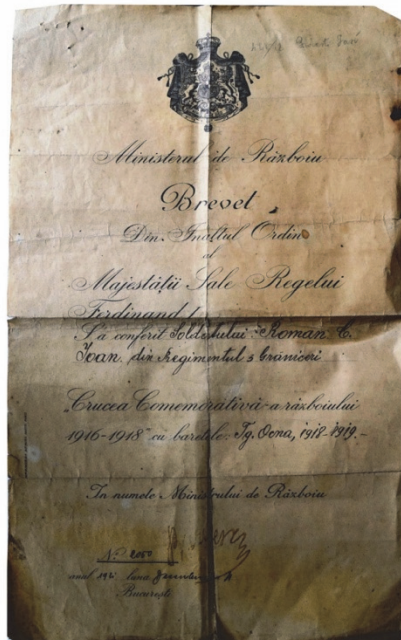 Ministerul de Război
Brevet
Din Înaltul Ordin
al
Majestății Sale Regelui
Ferdinand I
S'a conferit Soldatului Roman C.
Ioan din Regimentul 3 Grăniceri
"Crucea Comemorativă" a războiului
1916-1918" cu baretele Tg. Ocna, 1918-1919.-
In numele Ministrului de Războiu
No 2050
anul 192 luna
București